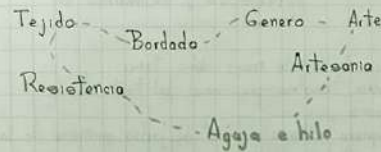 Tejido
Bordado
Genero
Arte
Artesania
Resistencia
Agaja e hilo